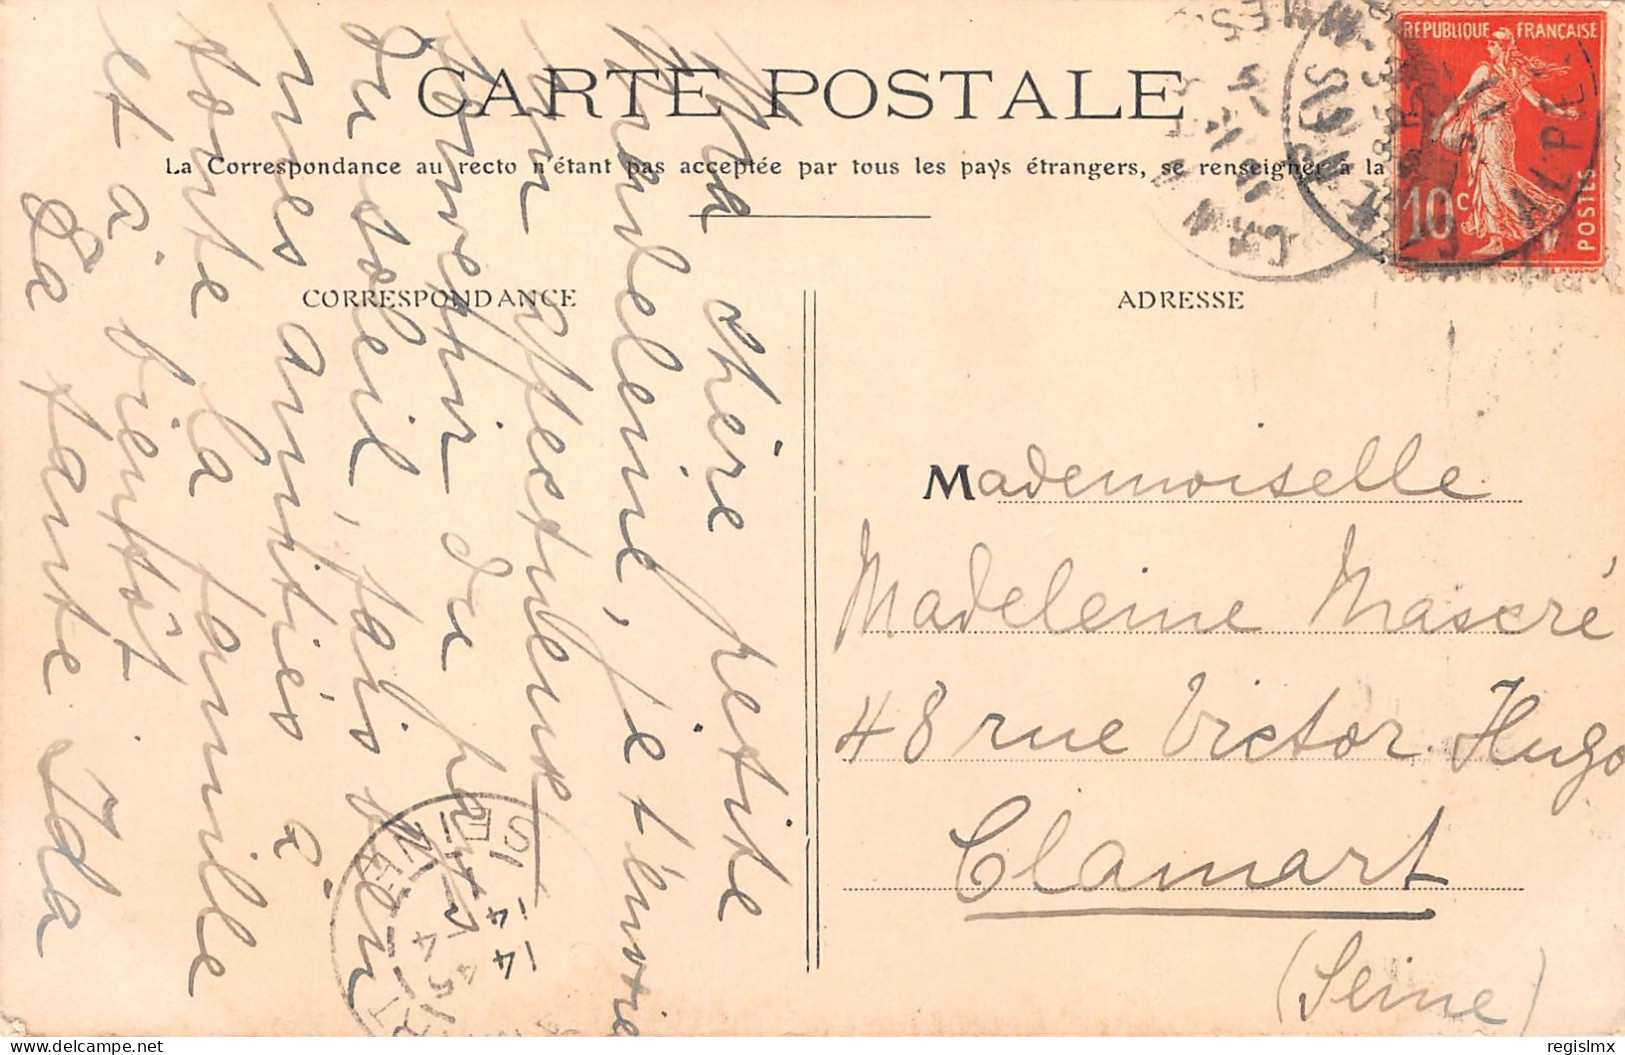 CARTE POSTALE
La Correspondance au recto n'étant pas acceptée par tous les pays étrangers, se renseigner à la
RÉPUBLIQUE FRANÇAISE
10 c
POSTES
CORRESPONDANCE
Ma chère petite
Madeleine, je t'envoie
un affectueux
souvenir du pays
du soleil, fais bien
mes amitiés à
toute la famille
et à bientôt
Ta tante Ida
ADRESSE
Mademoiselle
Madeleine Mascré
48 rue Victor Hugo
Clamart
(Seine)
SEINE
regislmx
delcampe.net